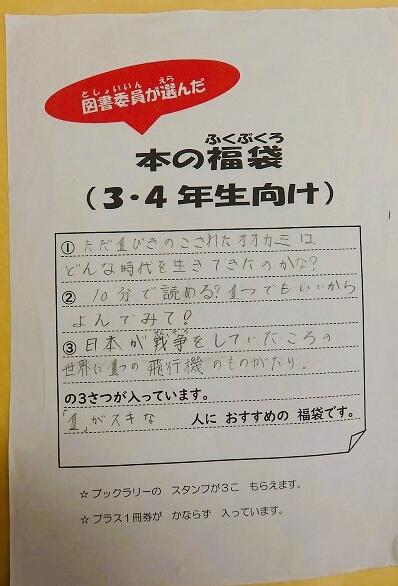 としょいいん えら
図書委員が選んだ
ふくぶくろ
本の福袋
(3・4年生向け)
① ただ1ぴきのこされたオオカミは
どんな時代を生きてきたのかな?
② 10分で読める?1つでもいいから
よんでみて!
③ 日本が戦争をしていたころの
世界に1つの飛行機のものがたり。
の3さつが入っています。
「1」がスキな 人に おすすめの 福袋です。
☆ ブックラリーの スタンプが3こ もらえます。
☆ プラス1冊券が かならず 入っています。